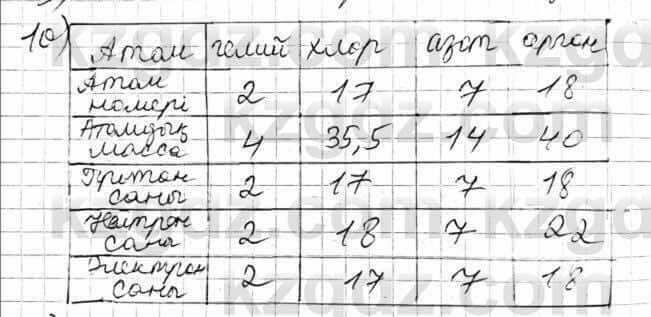 10)
Атом гелий хлор азот аргон
Атом номері 2 17 7 18
Атомдық масса 4 35,5 14 40
Протон саны 2 17 7 18
Нейтрон саны 2 18 7 22
Электрон саны 2 17 7 18